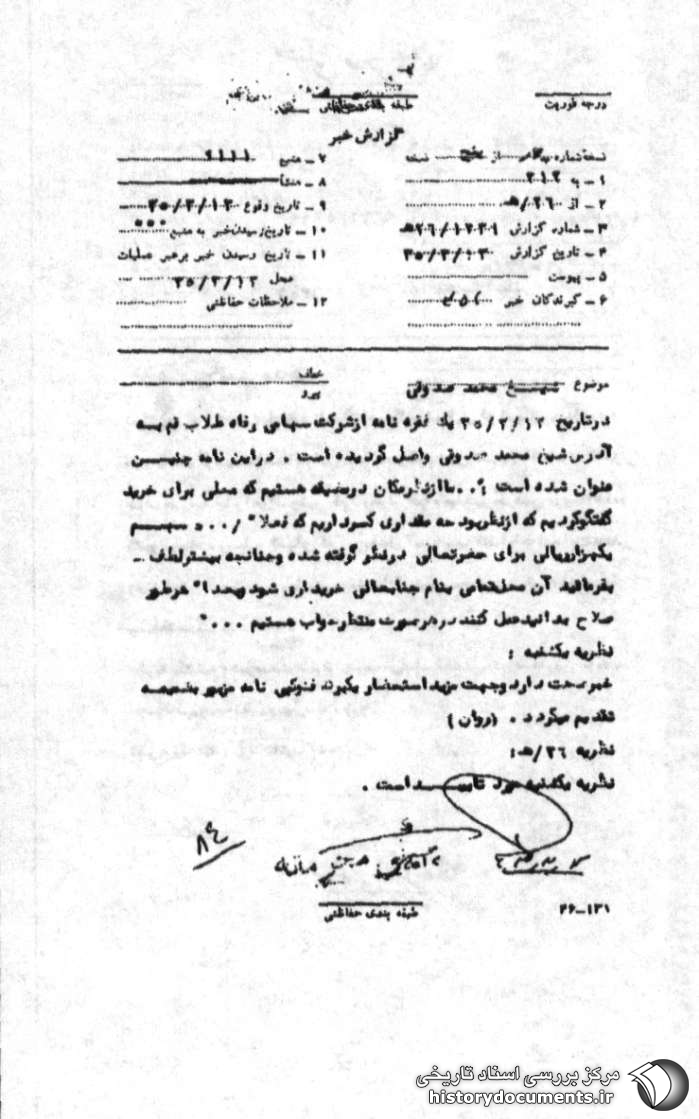 درجه فوریت
طبقه بندی حفاظتی
گزارش خبر
نسخه شماره از پنج نسخه
۱ - به ۳۱۲
۲ - از ۲۶/ه
۳ - شماره گزارش
۴ - تاریخ گزارش
۵ - پیوست
۶ - گیرندگان خبر
۷ - منبع ۹۱۱۱
۸ - منشأ
۹ - تاریخ وقوع
۱۰ - تاریخ رسیدن خبر به منبع
۱۱ - تاریخ رسیدن خبر برهبر عملیات
محل ۳۵/۳/۱۳
۱۲ - ملاحظات حفاظتی
موضوع شیخ محمد صدوقی
عطف
پیرو
درتاریخ ۳۵/۳/۱۲ یک فقره نامه ازشرکت سهامی رفاه طلاب قم به
آدرس شیخ محمد صدوقی واصل گردیده است . دراین نامه چنین
عنوان شده است : ... ما ازنظرمکان درمضیقه هستیم که محلی برای خرید
گفتگو کردیم که ازنظر بودجه مقداری کسر داریم که فعلا" سهم
یکهزارریالی برای حضرتعالی درنظر گرفته شده وچنانچه بیشترلطف
بفرمائید آن محل تماس بنام جنابعالی خریداری شود وبعدا" هرطور
صلاح بدانید عمل کنند درهرصورت منتظر جواب هستیم ..."
نظریه یکشنبه :
خبرصحت دارد وجهت مزید استحضار یکبرگ فتوکپی نامه مزبور بضمیمه
تقدیم میگردد . (روان)
نظریه ۲۶/ه :
نظریه یکشنبه مورد تایید است .
۸۴
طبقه بندی حفاظتی
۲۶-۱۳۱
مرکز بررسی اسناد تاریخی
historydocuments.ir